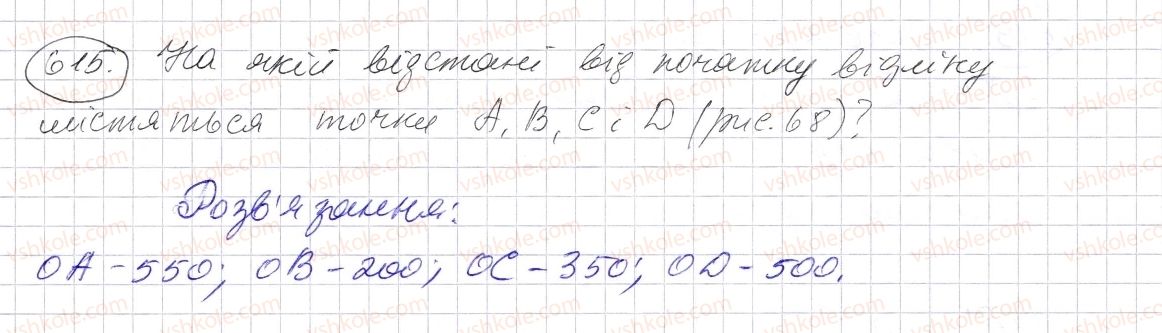 615. На якій відстані від початку відліку
містяться точки A, B, C і D (рис. 68)?
Розв'язання:
OA - 550; OB - 200; OC - 350; OD - 500.